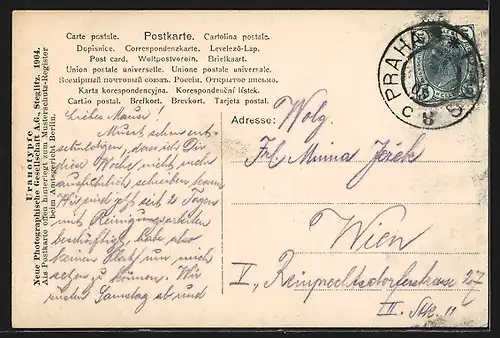 Carte postale. Postkarte. Cartolina postale.
Dopisnice. Correspondenzkarte. Levelező-Lap.
Post card. Weltpostverein. Briefkaart.
Union postale universelle. Unione postale universale.
Всемірный почтовый союзъ. Россія. Открытое письмо.
Karta korespondencyjna. Korespondenční lístek.
Cartão postal. Brefkort. Brevkort. Tarjeta postal.
Uranotypie
Neue Photographische Gesellschaft A.G., Steglitz. 1904.
Als Postkarte offen hinterlegt zum Musterschutz-Register
beim Amtsgericht Berlin.
Liebes Mausi!
Musst schon ent-
schuldigen, dass ich Dir
diese Woche nicht mehr
ausführlich schreiben kann
Wir sind seit 2 Tagen
mit Reinigungsarbeiten
beschäftigt, habe also
keinen Platz um mich
setzen zu können. Wir
Samstag ab und
Adresse: Wolg.
Frl. Minna Ježek
Wien
V., Reinprechtsdorferstrasse 27
III. Stk. 11
PRAHA